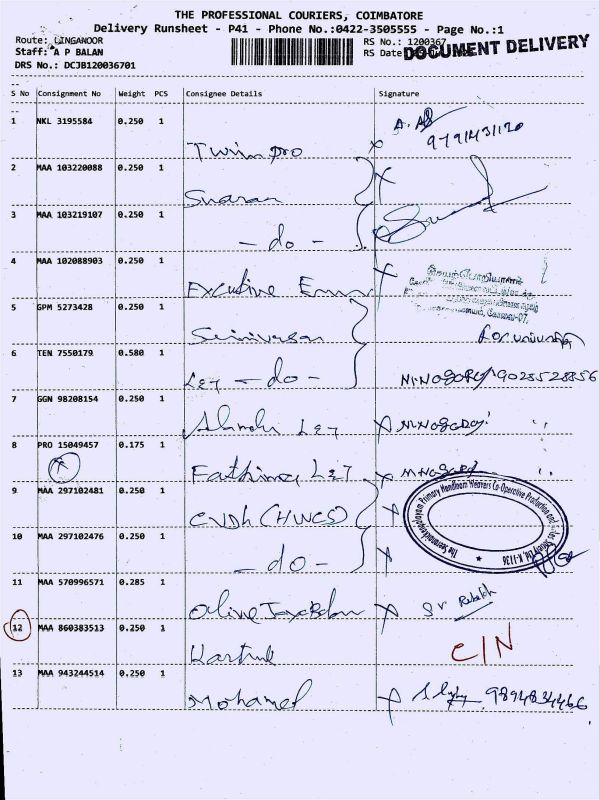 THE PROFESSIONAL COURIERS, COIMBATORE
Delivery Runsheet - P41 - Phone No.:0422-3505555 - Page No.:1
Route: LINGANOOR
RS No.: 1200367
Staff: A P BALAN
RS Date
DOCUMENT DELIVERY
DRS No.: DCJB120036701
S No Consignment No Weight PCS Consignee Details Signature
1 NKL 3195584 0.250 1
9791431120
Twin pro
2 MAA 103220088 0.250 1
3 MAA 103219107 0.250 1
- do -
4 MAA 102088903 0.250 1
Executive
5 GPM 5273428 0.250 1
Srinivasan
6 TEN 7550179 0.580 1
- do - 9028528856
7 GGN 98208154 0.250 1
8 PRO 15049457 0.175 1
Fathima
9 MAA 297102481 0.250 1
CNDh (HWCS)
The Seeranaickenpalayam Primary Handloom Weavers Co-Operative Production and Sales Society Ltd. K-1138
10 MAA 297102476 0.250 1
- do -
11 MAA 570996571 0.285 1
12 MAA 860383513 0.250 1
C/N
Karthik
13 MAA 943244514 0.250 1
Mohamed 9894834466